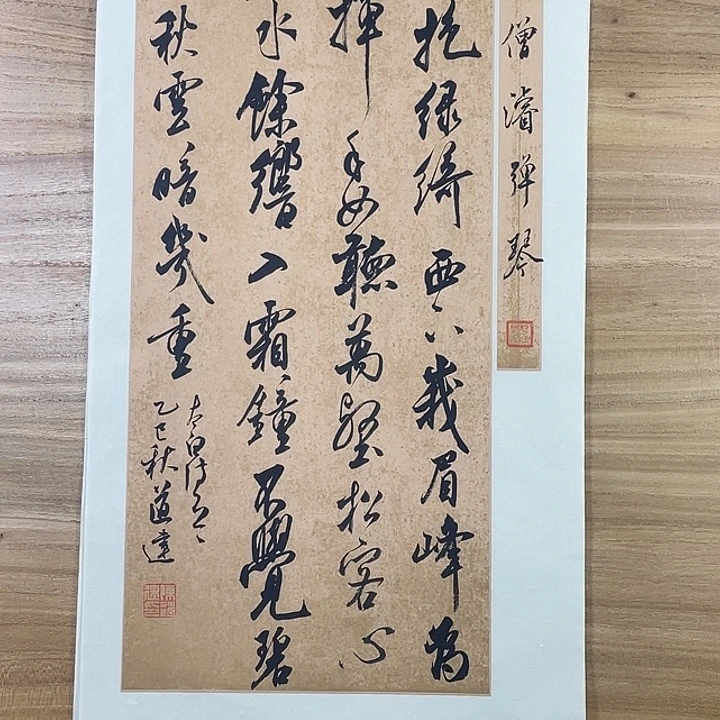 僧濬彈琴
抱绿绮西下峩眉峰為
揮手如聽萬壑松客心
水餘響入霜鐘不覺碧
秋雲暗幾重
太白诗
乙巳秋道達